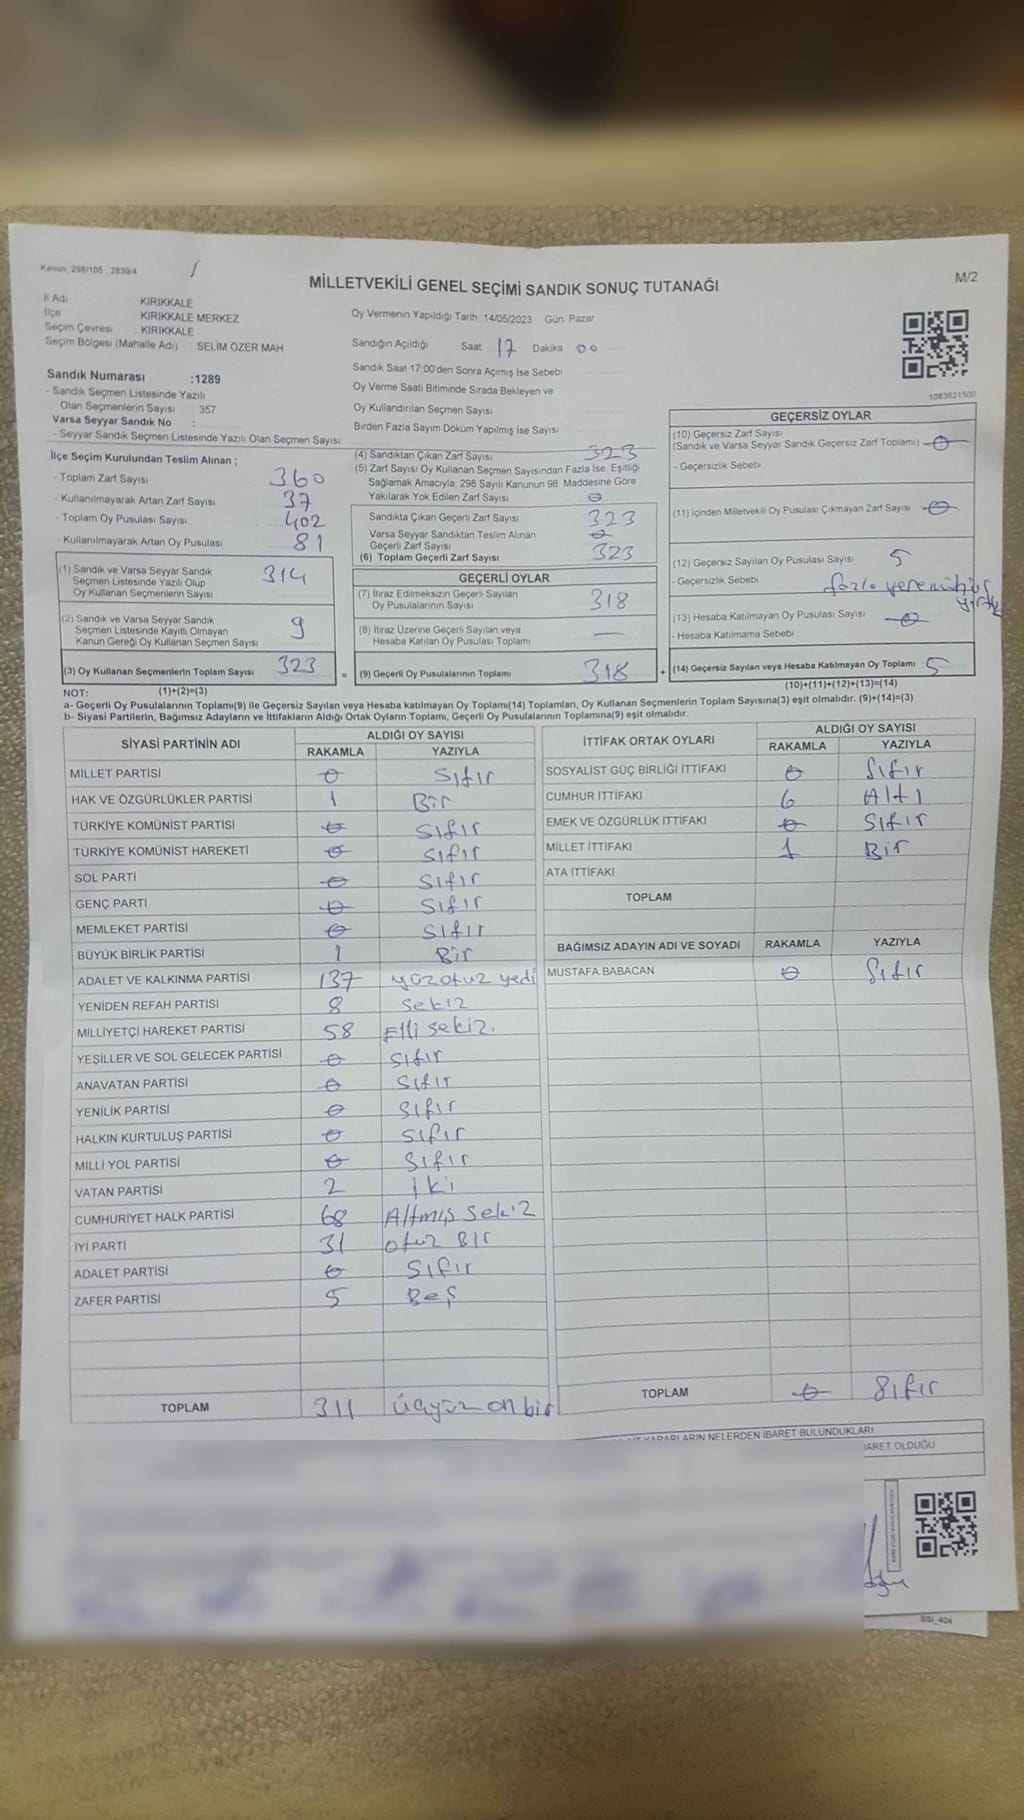 Kanun: 298/105 , 2839/4
MİLLETVEKİLİ GENEL SEÇİMİ SANDIK SONUÇ TUTANAĞI
M/2
İl Adı KIRIKKALE
İlçe KIRIKKALE MERKEZ
Seçim Çevresi KIRIKKALE
Seçim Bölgesi (Mahalle Adı) SELİM ÖZER MAH
Sandık Numarası :1289
- Sandık Seçmen Listesinde Yazılı
Olan Seçmenlerin Sayısı 357
Varsa Seyyar Sandık No :
- Seyyar Sandık Seçmen Listesinde Yazılı Olan Seçmen Sayısı:
Oy Vermenin Yapıldığı Tarih 14/05/2023 Gün Pazar
Sandığın Açıldığı Saat 17 Dakika 00
Sandık Saat 17:00'den Sonra Açımış İse Sebebi
Oy Verme Saati Bitiminde Sırada Bekleyen ve
Oy Kullandırılan Seçmen Sayısı
Birden Fazla Sayım Döküm Yapılmış İse Sayısı
1083621500
İlçe Seçim Kurulundan Teslim Alınan ;
- Toplam Zarf Sayısı 360
- Kullanılmayarak Artan Zarf Sayısı 37
- Toplam Oy Pusulası Sayısı 402
- Kullanılmayarak Artan Oy Pusulası 81
(1) Sandık ve Varsa Seyyar Sandık
Seçmen Listesinde Yazılı Olup
Oy Kullanan Seçmenlerin Sayısı 314
(2) Sandık ve Varsa Seyyar Sandık
Seçmen Listesinde Kayıtlı Olmayan
Kanun Gereği Oy Kullanan Seçmen Sayısı 9
(3) Oy Kullanan Seçmenlerin Toplam Sayısı 323
(4) Sandıktan Çıkan Zarf Sayısı 323
(5) Zarf Sayısı Oy Kullanan Seçmen Sayısından Fazla İse, Eşitliği
Sağlamak Amacıyla, 298 Sayılı Kanunun 98. Maddesine Göre
Yakılarak Yok Edilen Zarf Sayısı 0
Sandıkta Çıkan Geçerli Zarf Sayısı 323
Varsa Seyyar Sandıktan Teslim Alınan
Geçerli Zarf Sayısı 0
(6) Toplam Geçerli Zarf Sayısı 323
GEÇERLİ OYLAR
(7) İtiraz Edilmeksizin Geçerli Sayılan
Oy Pusulalarının Sayısı 318
(8) İtiraz Üzerine Geçerli Sayılan veya
Hesaba Katılan Oy Pusulası Toplamı —
= (9) Geçerli Oy Pusulalarının Toplamı 318
GEÇERSİZ OYLAR
(10) Geçersiz Zarf Sayısı
(Sandık ve Varsa Seyyar Sandık Geçersiz Zarf Toplamı) 0
- Geçersizlik Sebebi
(11) İçinden Milletvekili Oy Pusulası Çıkmayan Zarf Sayısı 0
(12) Geçersiz Sayılan Oy Pusulası Sayısı 5
- Geçersizlik Sebebi fazla yere mühür
(13) Hesaba Katılmayan Oy Pusulası Sayısı 0
- Hesaba Katılmama Sebebi
+ (14) Geçersiz Sayılan veya Hesaba Katılmayan Oy Toplamı 5
(10)+(11)+(12)+(13)=(14)
NOT: (1)+(2)=(3)
a- Geçerli Oy Pusulalarının Toplamı(9) ile Geçersiz Sayılan veya Hesaba katılmayan Oy Toplamı(14) Toplamları, Oy Kullanan Seçmenlerin Toplam Sayısına(3) eşit olmalıdır. (9)+(14)=(3)
b- Siyasi Partilerin, Bağımsız Adayların ve İttifakların Aldığı Ortak Oyların Toplamı, Geçerli Oy Pusulalarının Toplamına(9) eşit olmalıdır.
SİYASİ PARTİNİN ADI ALDIĞI OY SAYISI
RAKAMLA YAZIYLA
MİLLET PARTİSİ 0 Sıfır
HAK VE ÖZGÜRLÜKLER PARTİSİ 1 Bir
TÜRKİYE KOMÜNİST PARTİSİ 0 Sıfır
TÜRKİYE KOMÜNİST HAREKETİ 0 Sıfır
SOL PARTİ 0 Sıfır
GENÇ PARTİ 0 Sıfır
MEMLEKET PARTİSİ 0 Sıfır
BÜYÜK BİRLİK PARTİSİ 1 Bir
ADALET VE KALKINMA PARTİSİ 137 yüzotuz yedi
YENİDEN REFAH PARTİSİ 8 Sekiz
MİLLİYETÇİ HAREKET PARTİSİ 58 Elli sekiz.
YEŞİLLER VE SOL GELECEK PARTİSİ 0 Sıfır
ANAVATAN PARTİSİ 0 Sıfır
YENİLİK PARTİSİ 0 Sıfır
HALKIN KURTULUŞ PARTİSİ 0 Sıfır
MİLLİ YOL PARTİSİ 0 Sıfır
VATAN PARTİSİ 2 İki
CUMHURİYET HALK PARTİSİ 68 Altmış sekiz
İYİ PARTİ 31 otuz Bir
ADALET PARTİSİ 0 Sıfır
ZAFER PARTİSİ 5 Beş
TOPLAM 311 üçyüz on bir
İTTİFAK ORTAK OYLARI ALDIĞI OY SAYISI
RAKAMLA YAZIYLA
SOSYALİST GÜÇ BİRLİĞİ İTTİFAKI 0 Sıfır
CUMHUR İTTİFAKI 6 Altı
EMEK VE ÖZGÜRLÜK İTTİFAKI 0 Sıfır
MİLLET İTTİFAKI 1 Bir
ATA İTTİFAKI
TOPLAM
BAĞIMSIZ ADAYIN ADI VE SOYADI RAKAMLA YAZIYLA
MUSTAFA BABACAN 0 Sıfır
TOPLAM 0 Sıfır
KARARLARIN NELERDEN İBARET BULUNDUKLARI
İBARET OLDUĞU
SSI_404